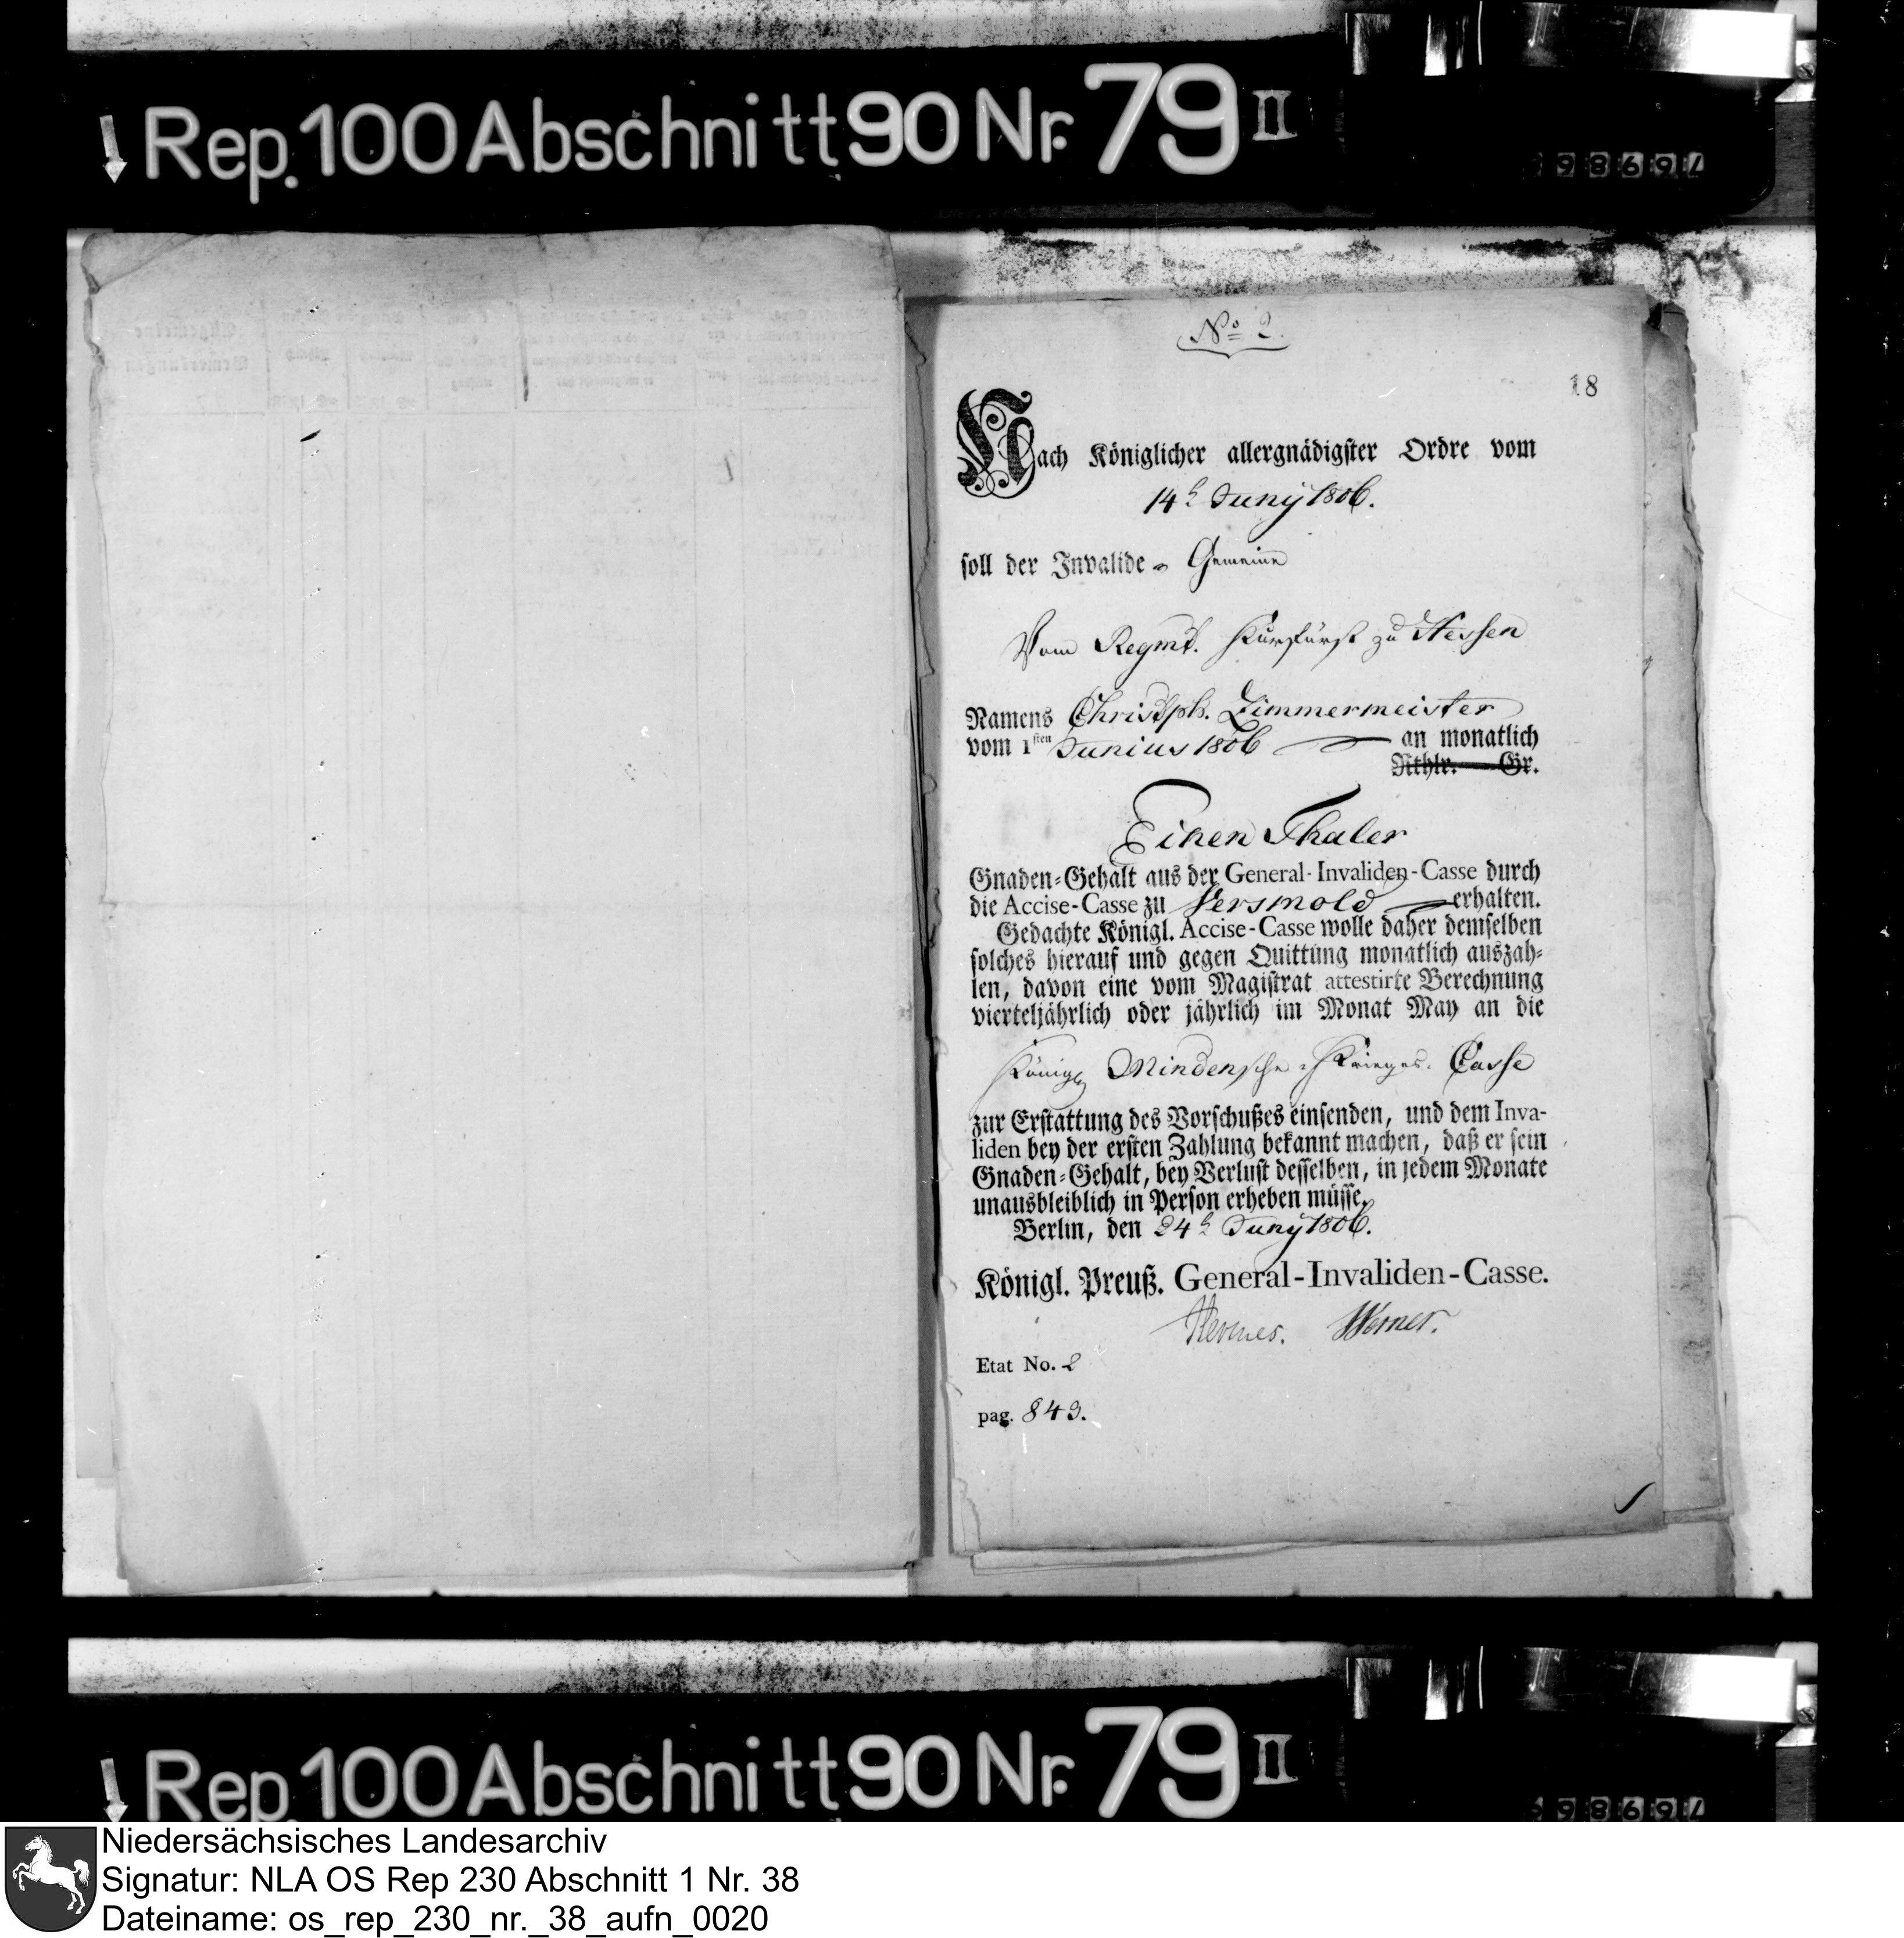 Rep. 100 Abschnitt 90 Nr. 79 II
98697
No 2.
18
Nach Königlicher allergnädigster Ordre vom
14t Juny 1806.
soll der Invalide Gemeine
Vom Regmt. Kurfürst zu Hessen
Namens Christph. Zimmermeister
vom 1sten Junius 1806 an monatlich
Rthlr. Gr.
Einen Thaler
Gnaden-Gehalt aus der General-Invaliden-Casse durch
die Accise-Casse zu Versmold erhalten.
Gedachte Königl. Accise-Casse wolle daher demselben
solches hierauf und gegen Quittung monatlich auszah-
len, davon eine vom Magistrat attestirte Berechnung
vierteljährlich oder jährlich im Monat May an die
Königl Mindensche Krieges-Casse
zur Erstattung des Vorschußes einsenden, und dem Inva-
liden bey der ersten Zahlung bekannt machen, daß er sein
Gnaden-Gehalt, bey Verlust desselben, in jedem Monate
unausbleiblich in Person erheben müsse.
Berlin, den 24t Juny 1806.
Königl. Preuß. General-Invaliden-Casse.
Hermes. Werner.
Etat No. 2
pag. 843.
Rep. 100 Abschnitt 90 Nr. 79 II
98697
Niedersächsisches Landesarchiv
Signatur: NLA OS Rep 230 Abschnitt 1 Nr. 38
Dateiname: os_rep_230_nr._38_aufn_0020